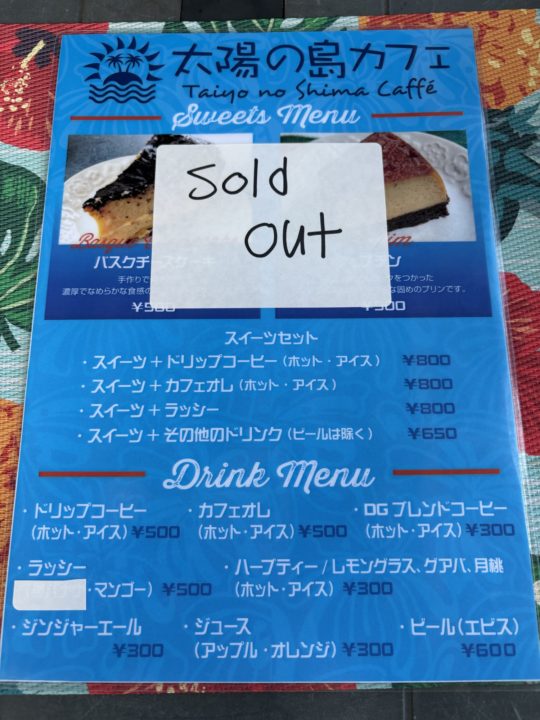 太陽の島カフェ
Taiyo no Shima Caffé
Sweets Menu
Sold
out
バスクチ
手作りで
濃厚でなめらかな食感の
をつかった
な固めのプリンです。
¥500
¥500
スイーツセット
・スイーツ＋ドリップコーヒー（ホット・アイス） ¥800
・スイーツ＋カフェオレ（ホット・アイス） ¥800
・スイーツ＋ラッシー ¥800
・スイーツ＋その他のドリンク（ビールは除く） ¥650
Drink Menu
・ドリップコーヒー ・カフェオレ ・OGブレンドコーヒー
（ホット・アイス）¥500 （ホット・アイス）¥500 （ホット・アイス）¥300
・ラッシー ・ハーブティー / レモングラス、グアバ、月桃
・マンゴー） ¥500 （ホット・アイス） ¥300
・ジンジャーエール ・ジュース ・ビール（エビス）
¥300 （アップル・オレンジ）¥300 ¥600